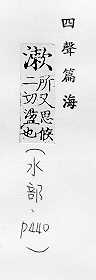 四聲篇海
漱
所又思候
二切盪也
（水部、p440）